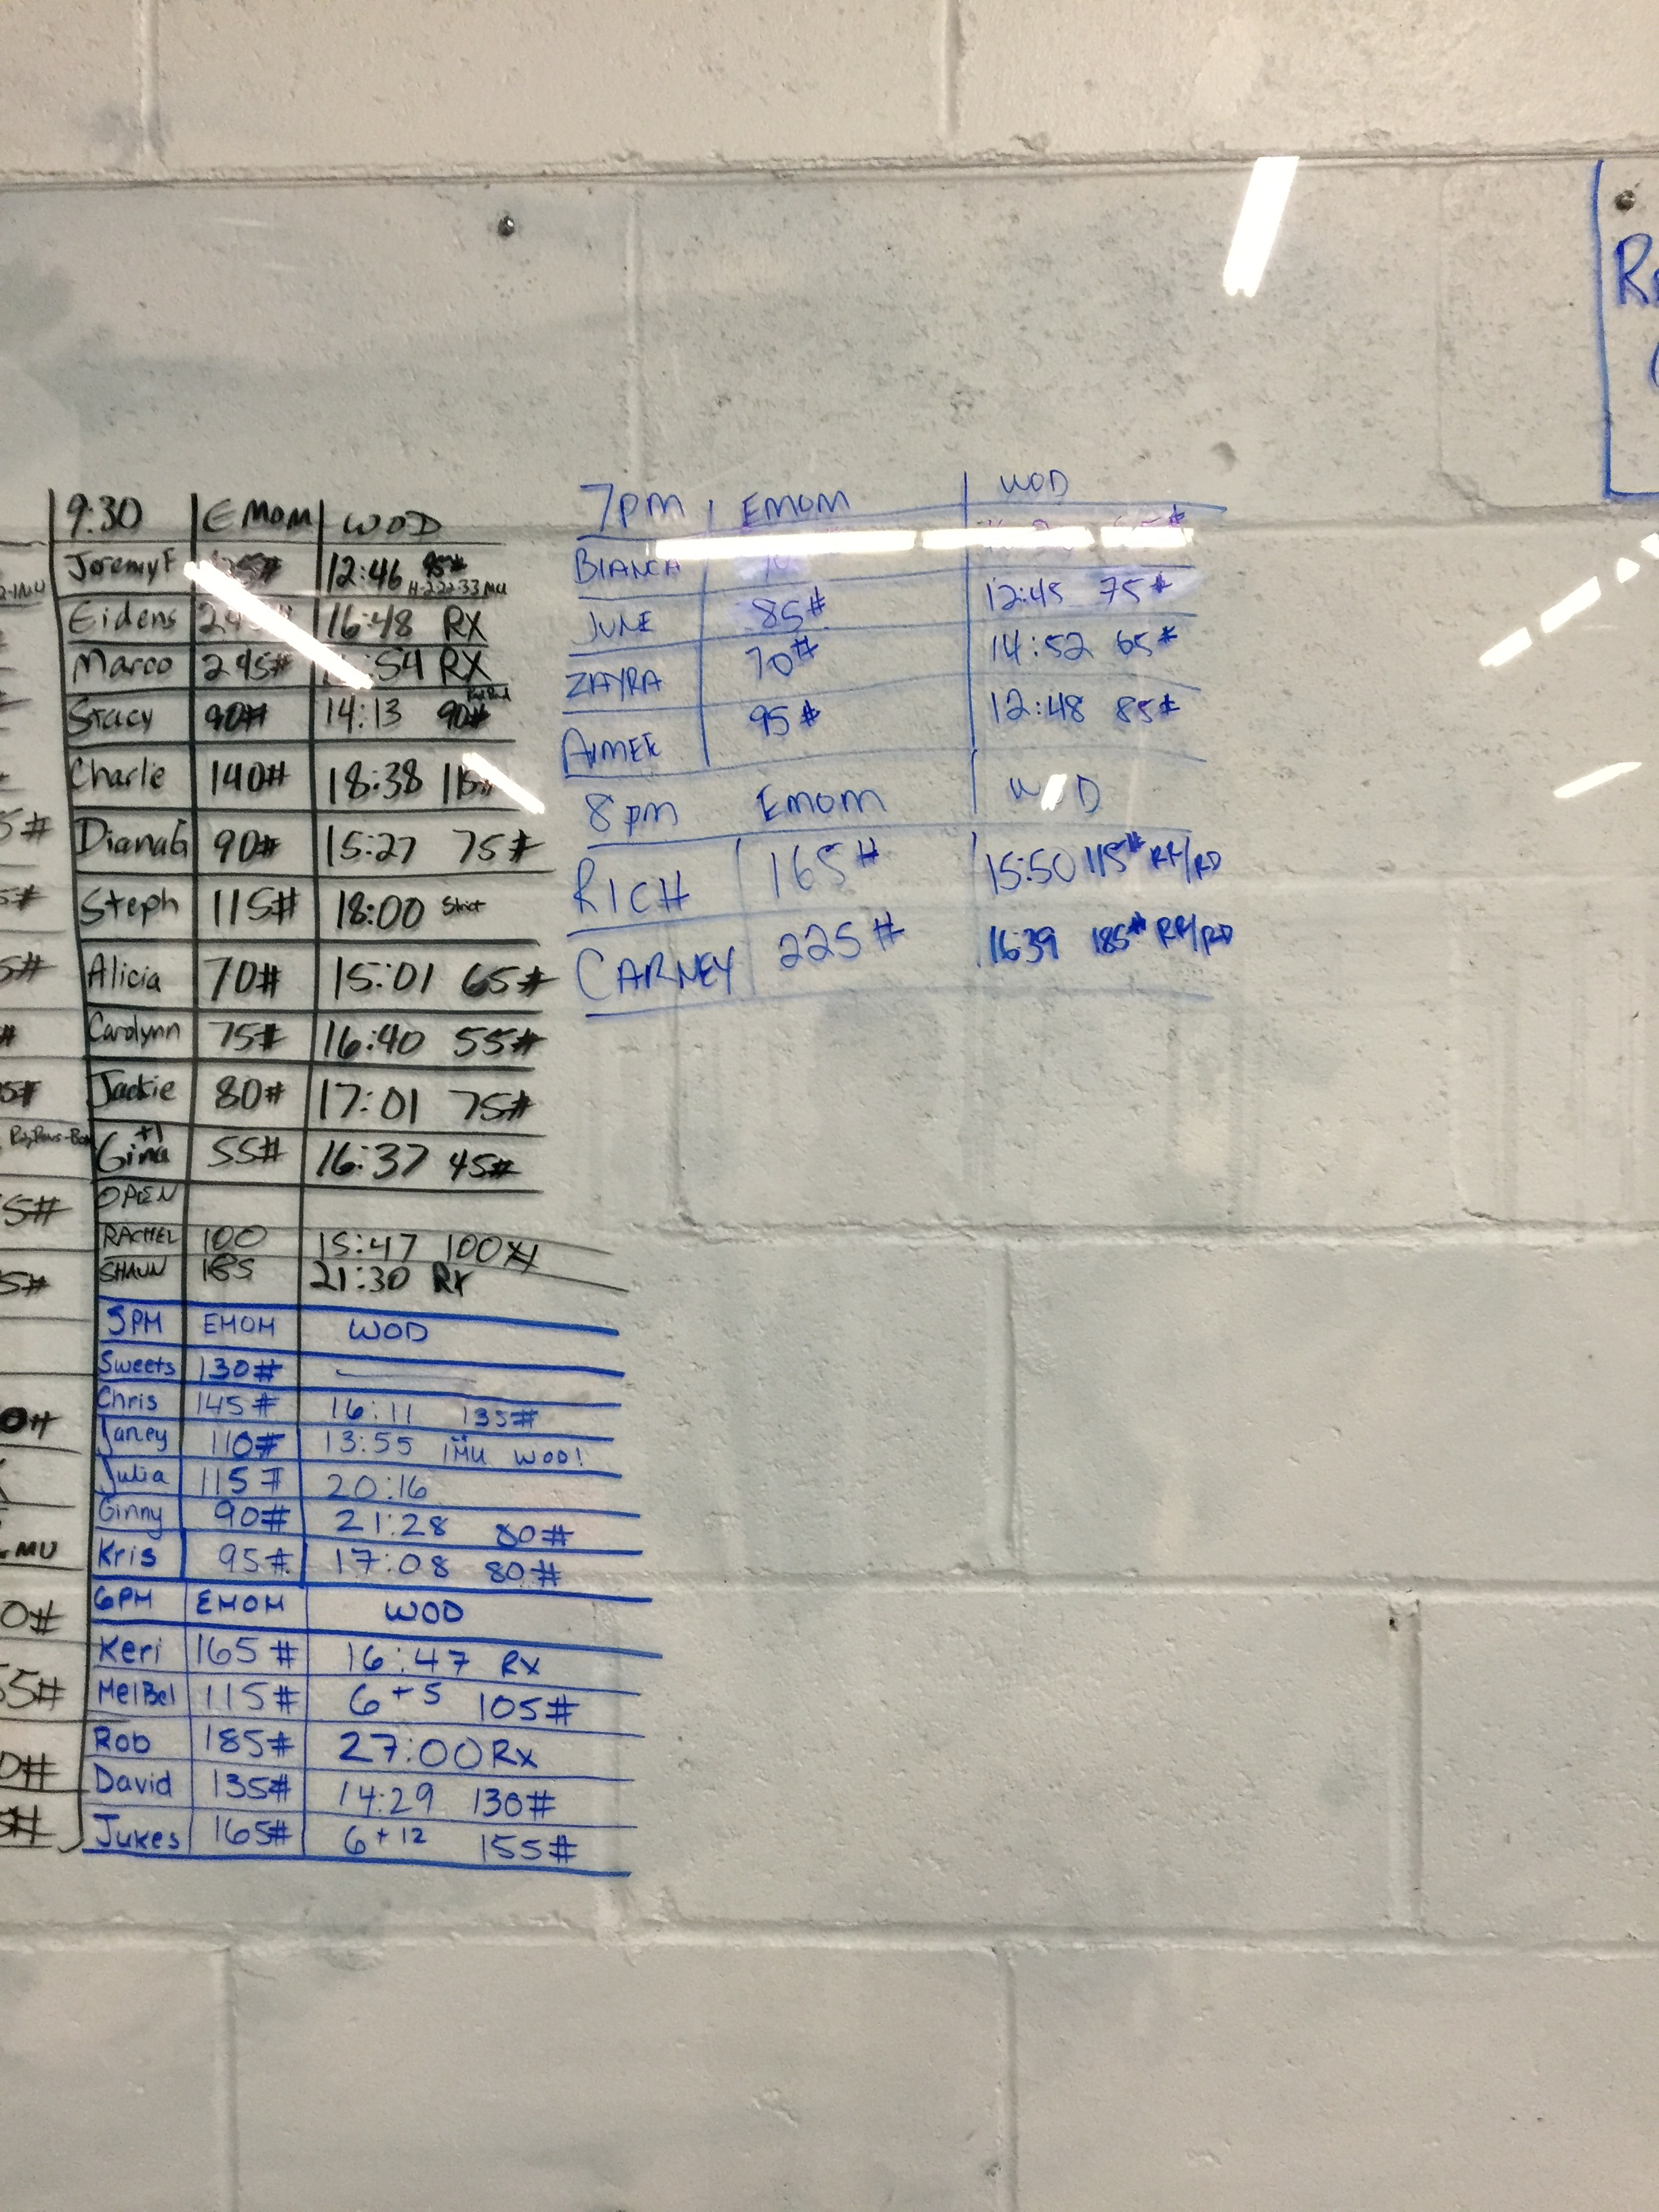 9:30 EMOM WOD
Jeremy F 12:46 95#
Eidens 16:48 RX
Marco 245# :54 RX
Stacy 90# 14:13 90#
Charlie 140# 18:38
Diana G 90# 15:27 75#
Steph 115# 18:00 Strict
Alicia 70# 15:01 65#
Carolynn 75# 16:40 55#
Jackie 80# 17:01 75#
Gina +1 55# 16:37 45#
OPEN
RACHEL 100 15:47 100#
SHAUN 185 21:30 RX
5PM EMOM WOD
Sweets 130#
Chris 145# 16:11 135#
Janey 110# 13:55 1MU WOD!
Julia 115# 20:16
Ginny 90# 21:28 80#
Kris 95# 17:08 80#
6PM EMOM WOD
Keri 165# 16:47 Rx
MelBel 115# 6+5 105#
Rob 185# 27:00 Rx
David 135# 14:29 130#
Jukes 165# 6+12 155#
7pm EMOM WOD
BIANCA
JUNE 85# 12:45 75#
ZAYRA 70# 14:52 65#
AIMEE 95# 12:48 85#
8pm EMOM WOD
RICH 165# 15:50 115# RR/RD
CARNEY 225# 16:39 185# RR/RD